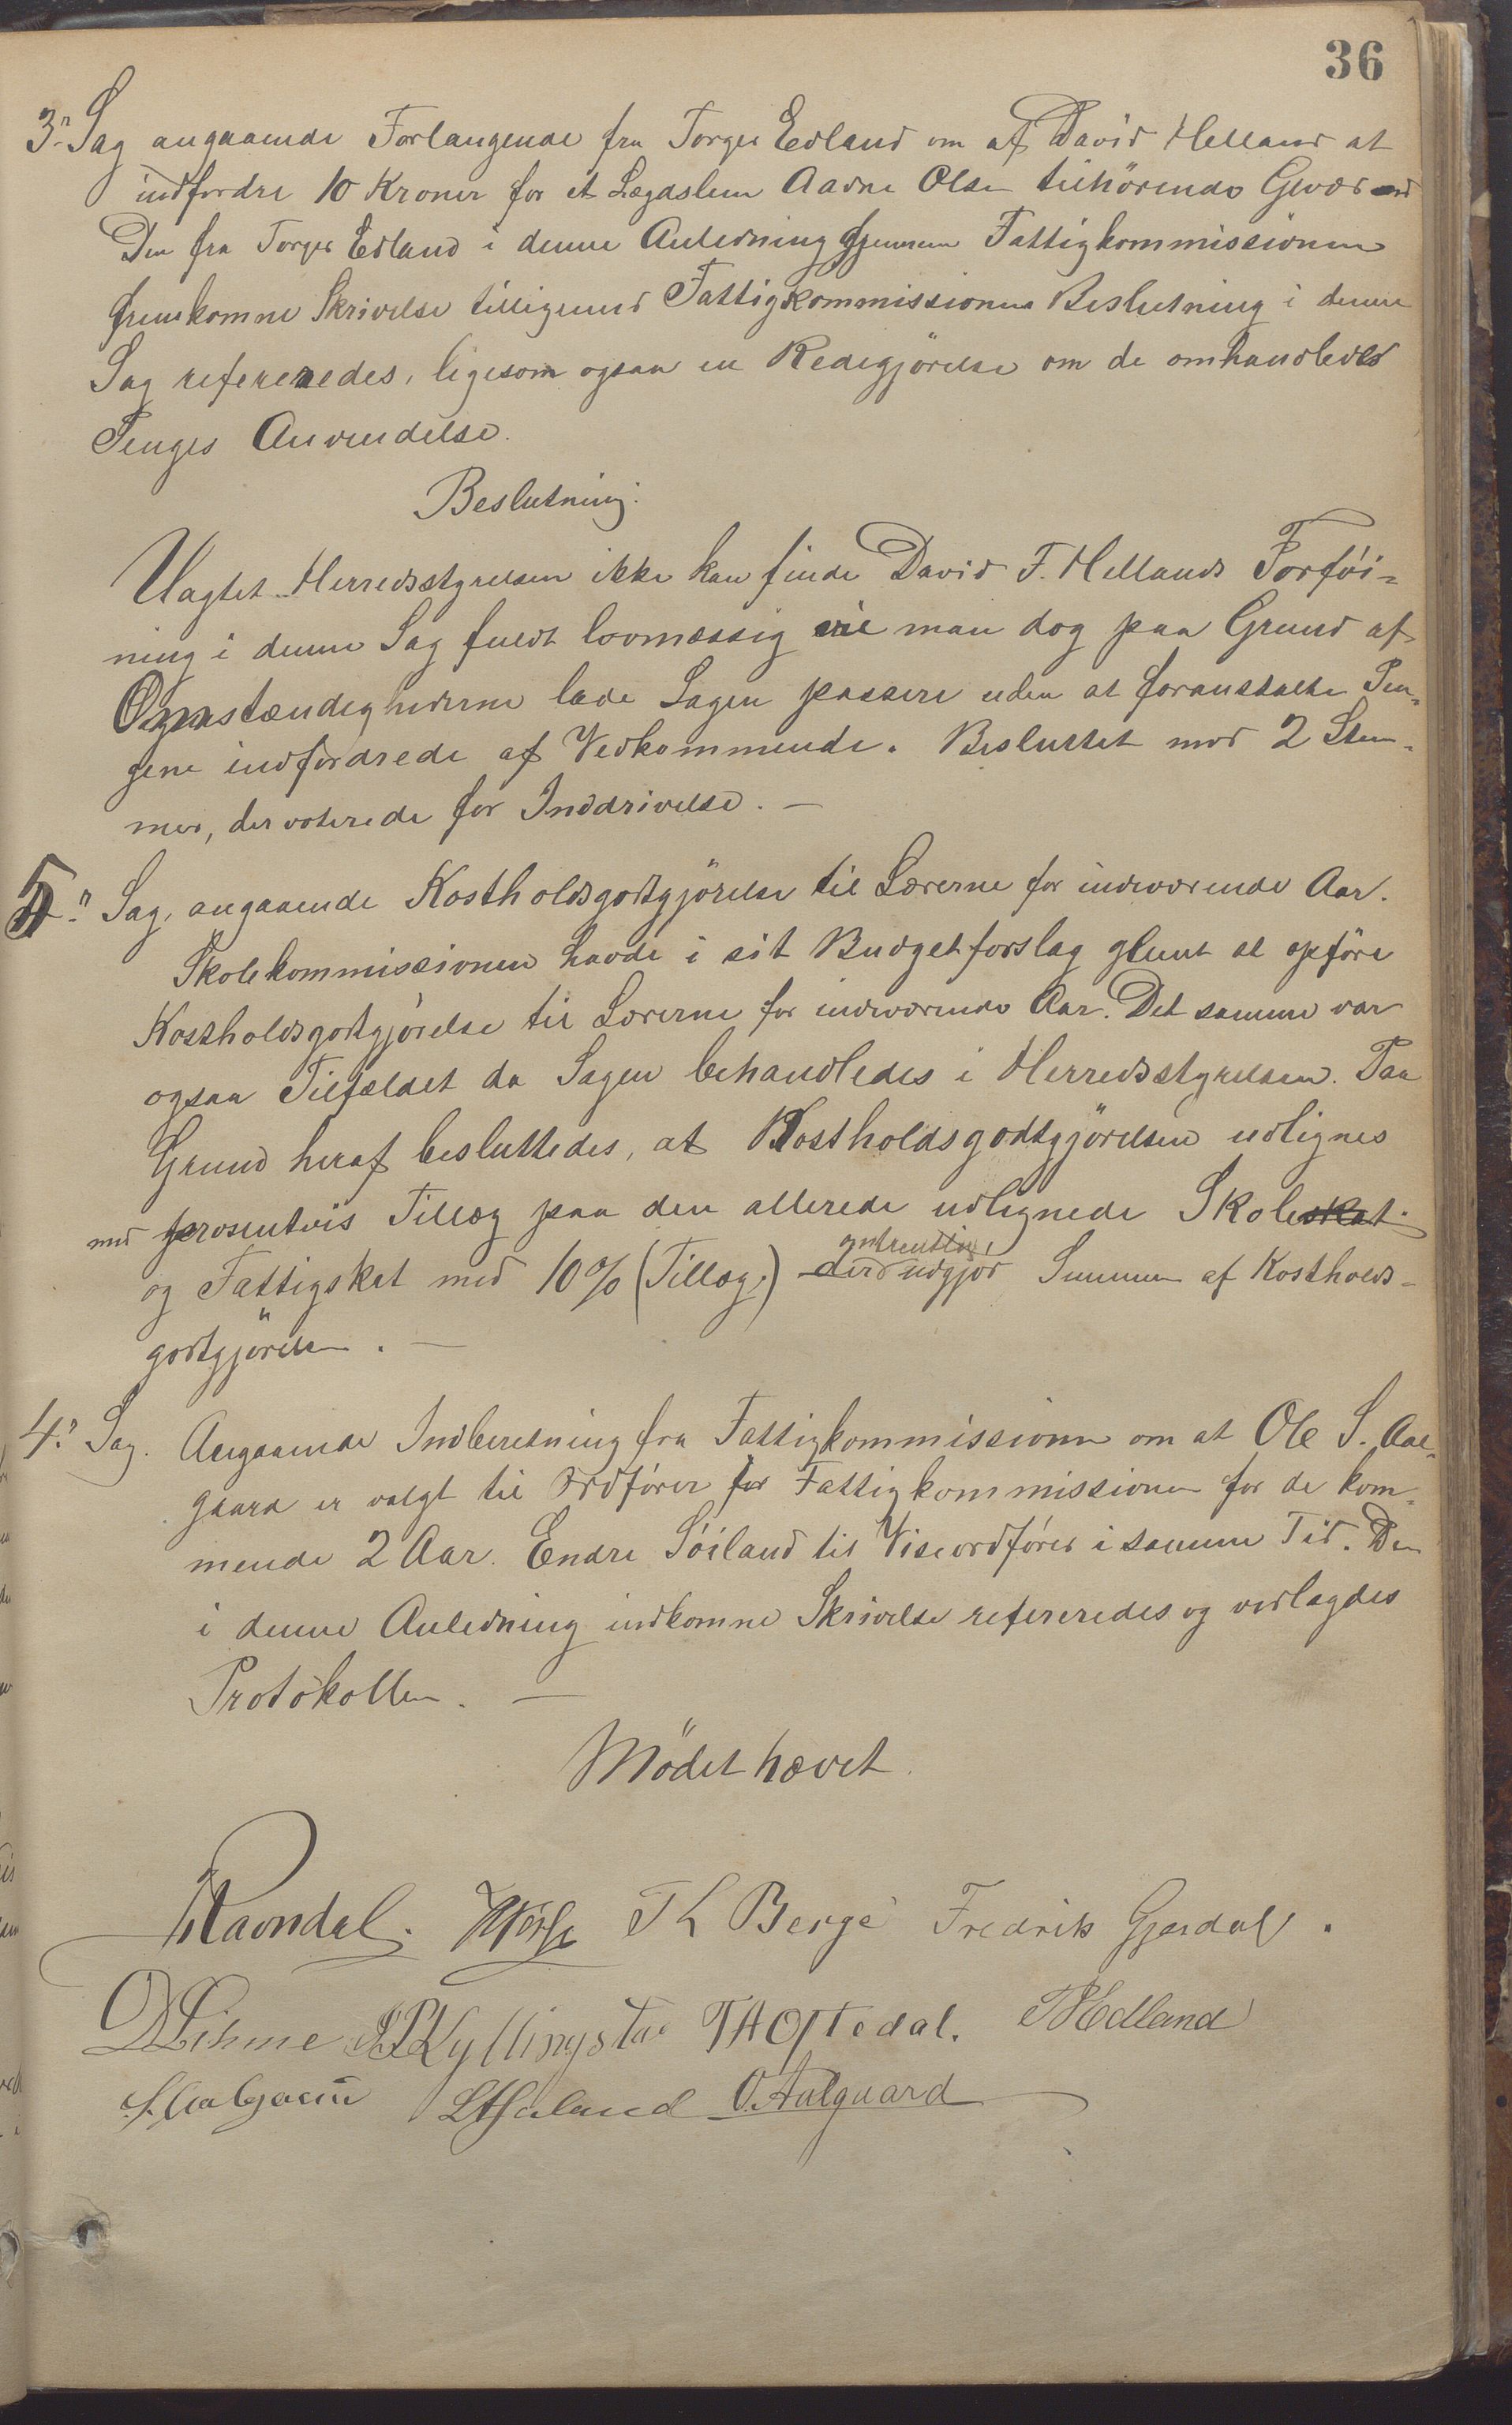 36
3.die Sag angaaende Forlangende fra Torger Edland om af David Helland at
indfordre 10 Kroner for et Lægdslem Aadne Olsen tilhörende Gevær
Den fra Torger Edland i denne Anledning gjennem Fattigkommissionen
fremkomne Skrivelse tilligemed Fattigkommissionens Beslutning i denne
Sag refereredes, ligesom ogsaa en Redegjörelse om de omhandlede
Penges Anvendelse.
Beslutning.
Uagtet Herredsstyrelsen ikke kan finde David F. Hellands Forföi-
ning i denne Sag fuldt lovmæssig vil man dog paa Grund af
Omstændighederne lade Sagen passere uden at foranstalte Pen-
gene indfordrede af Vedkommende. Besluttet mod 2 Stem-
mer, der voterede for Inddrivelse. —
5. Sag, angaaende Kostholdsgodtgjörelse til Lærerne for indeværende Aar.
Skolekommissionen havde i sit Budgetforslag glemt at opföre
Kostholdsgodtgjörelse til Lærerne for indeværende Aar. Det samme var
ogsaa Tilfældet da Sagen behandledes i Herredsstyrelsen. Paa
Grund heraf besluttedes, at Kostholdsgodtgjörelsen udlignes
med prosentvis Tillæg paa den allerede udlignede Skoleskat
og Fattigskat med 10% (Tillæg.) der udgjör Summen af Kostholds-
godtgjörelsen. —
4. Sag. Angaaende Indberetning fra Fattigkommissionen om at Ole S. Aal-
gaard er valgt til Ordförer for Fattigkommissionen for de kom-
mende 2 Aar. Endre Söiland til Viseordförer i samme Tid. Den
i denne Anledning indkomne Skrivelse refereredes og vedlagdes
Protokollen. —
Mödet hævet.
Ravndal. T K Berge Fredrik Gjesdal.
D Lihme S P Kyllingstad T A Oftedal. T Hedland
S. Aalgaard O. Aalgaard